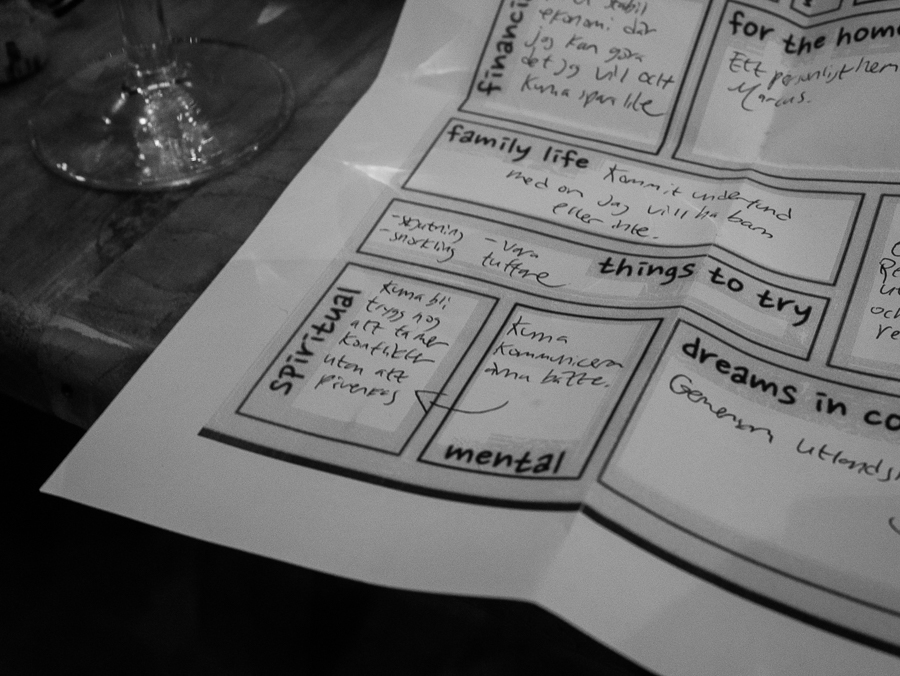 financi
stabil
ekonomi där
jag kan göra
det jag vill och
kunna spara lite
for the home
Ett personligt hem
Marcus.
family life
Kommit underfund
med om jag vill ha barn
eller inte.
things to try
- snorkling
- Vara
tuffare
spiritual
Kunna bli
trygg nog
att ta mer
konflikter
utan att
mental
Kunna
kommunicera
ännu bättre.
dreams in co
Gemensam utlands
och